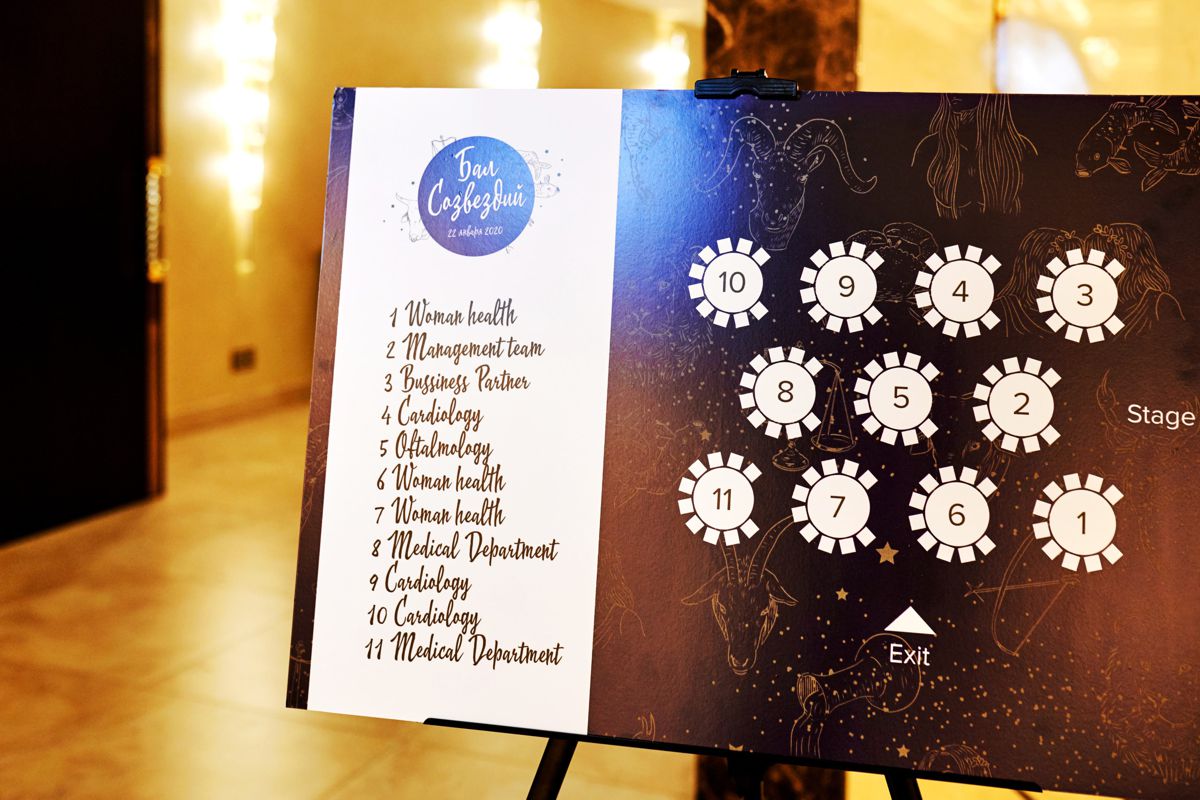 Бал
Созвездий
22 января 2020
1 Woman health
2 Management team
3 Bussiness Partner
4 Cardiology
5 Oftalmology
6 Woman health
7 Woman health
8 Medical Department
9 Cardiology
10 Cardiology
11 Medical Department
10 9 4 3
8 5 2
Stage
11 7 6 1
Exit